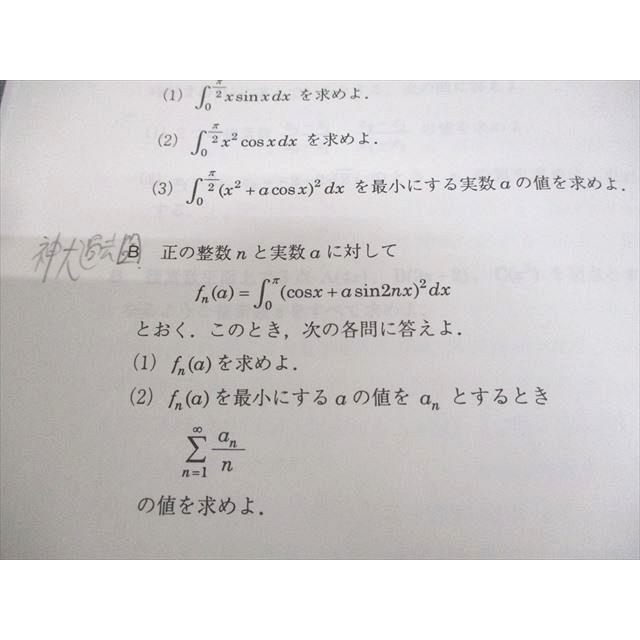 (1) ∫₀^{π/2} x sin x dx を求めよ.
(2) ∫₀^{π/2} x² cos x dx を求めよ.
(3) ∫₀^{π/2} (x² + a cos x)² dx を最小にする実数 a の値を求めよ.
神大過去問
B 正の整数 n と実数 a に対して
fₙ(a) = ∫₀^π (cosx + a sin2nx)² dx
とおく. このとき, 次の各問に答えよ.
(1) fₙ(a) を求めよ.
(2) fₙ(a) を最小にする a の値を aₙ とするとき
∑_{n=1}^{∞} aₙ/n
の値を求めよ.